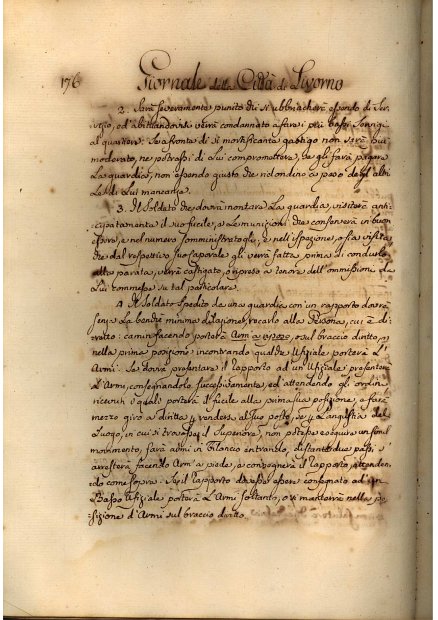 176 Giornale della Città di Livorno
2. Sarà severamente punito chi si ubbriacherà essendo di Ser-
vizio, ed abituandovisi verrà condannato a fare i più bassi servizi
al quartiere. Se a fronta di sì mortificante gastigo non verrà
moderato, ne potrassi di lui compromettere, se gli farà pagare
La guardia, non essendo giusto che ridondino a peso degl'altri
Le di Lui mancanze.
3. Il Soldato che dovrà montare La guardia, visiterà anti-
cipatamente il suo fucile, e Le munizioni che conserverà in buon
essere, e nel numero somministratogli, e nell'ispezione, o sia visita
che dal respettivo suo Caporale gli verrà fatta prima di condurlo
alla parata, verrà castigato, o ripreso a tenore dell'ommissione da
Lui commessa su tal particolare.
4. Il Soldato spedito da una guardia con un rapporto dovrà
senza La benchè minima dilazione, recarlo alla Persona, cui è di-
retto: camin facendo porterà Arm' a, o sul braccio diritto,
nella prima posizione: incontrando qualche Ufiziale porterà L'
Armi: Se dovrà presentare il rapporto ad un Ufiziale presenterà
L'Armi, consegnandolo successivamente, ed attendendo gli ordini
ricevuti i quali porterà il fucile alla prima sua posizione, e farà
mezzo giro a diritta p rendersi al suo posto, se p L'angustia del
Luogo, in cui si trovasse il Superiore, non potesse eseguire un simil
movimento, farà armi in Bilancio entrando, distante due passi, s'
arresterà facendo Arm' a piede, e consegnerà il rapporto, attenden-
do come sopra: Se il rapporto dovesse essere consegnato ad un
Basso Ufiziale porterà L'Armi soltanto, o si manterrà nella po-
sizione d'Armi sul braccio diritto.